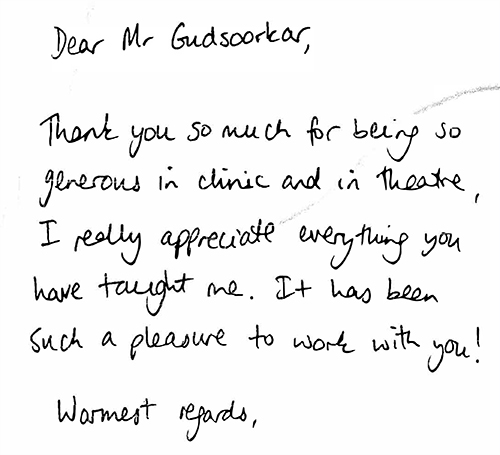 Dear Mr Gudsoorkar,
Thank you so much for being so
generous in clinic and in theatre,
I really appreciate everything you
have taught me. It has been
such a pleasure to work with you!
Warmest regards,